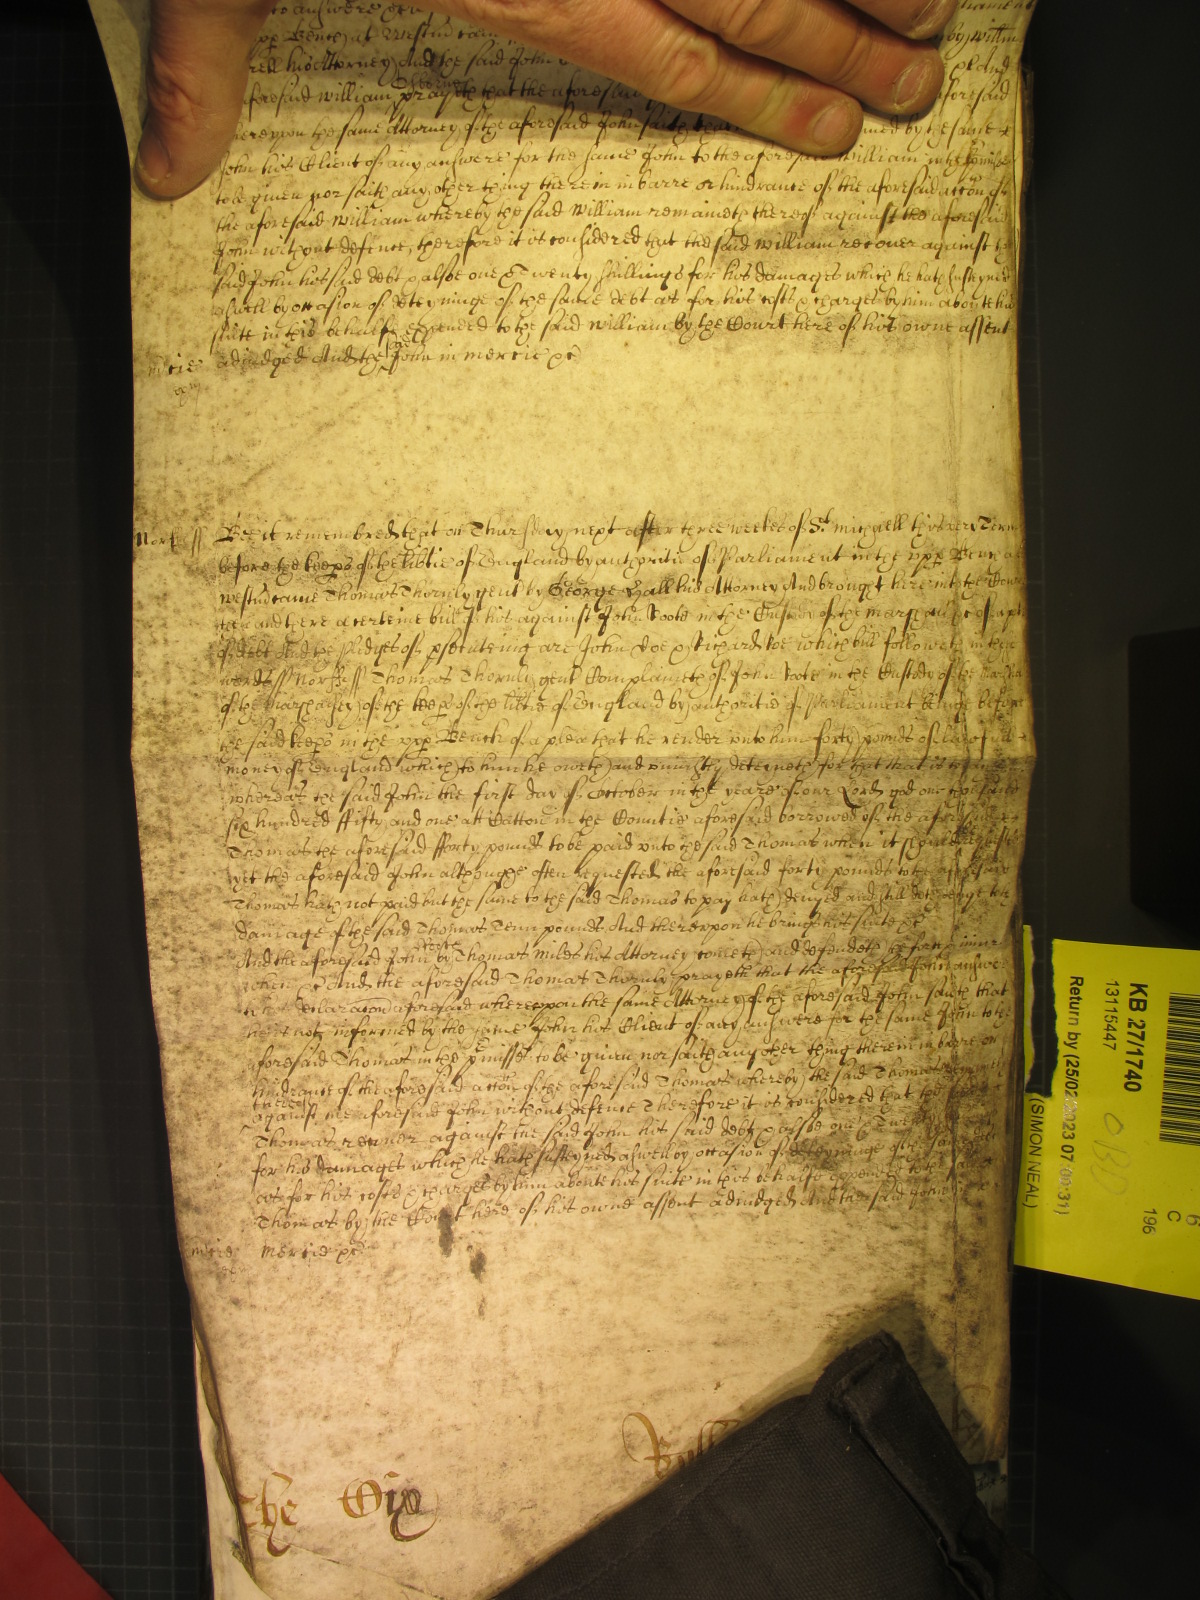 to answere
upp Bench at Westm came by Willm
rell his Attorney And the said John
aforesaid William prayeth that the aforesaid aforesaid
hereupon the same Attorney of the aforesaid John saith that informed by the same
John his Client of any answere for the same John to the aforesaid William in the
to be given nor saith any other thing therein in barre or hindrance of the aforesaid accon of
the aforesaid William whereby the said William remaineth thereof against the aforesaid
John without defence, therefore it is considdered that the said William recover against the
said John his said debt & alsoe one & Twenty shillings for his damages which he hath susteyned
aswell by occasion of deteyninge of the same debt as for his costs & charges by him about his
suite in this behalfe expended to the said William by the Court here of his owne assent
adiudged And the said John in mercie &c
mcie
Norff ss Bee it remembred that on Thursday next after three weekes of St Michaell this very Terme
before the keeps of the libtie of England by authoritie of Parliament in the upp Bench at
Westm came Thomas Thornly gent by George Hall his Attorney And brought here into the Court
then and there a certeine bill of his against John Roote in the Custody of the Marshall &c of a plea
of debt And the pledges of psecuteing are John Doe & Richard Roe which bill followeth in these
words ss Norff ss Thomas Thornly gent Complaineth of John Roote in the Custody of the Marshall
of the Marshalsey of the keeps of the libtie of England by authoritie of Parliament beinge before
the said keeps in the upp Bench of a plea that he render unto him forty pounds of lawfull
money of England which to him he oweth and uniustly deteyneth for that that is to say
whereas the said John the first day of October in the yeare of our Lord god one thousand
six hundred ffifty and one att Catton in the Countie aforesaid borrowed of the aforesaid
Thomas the aforesaid fforty pounds to be paid unto the said Thomas when it should
yet the aforesaid John althoughe often requested the aforesaid forty pounds to the aforesaid
Thomas hath not paid but the same to the said Thomas to pay hath denyed and still doth denye to the
damage of the said Thomas Tenn pounds And thereupon he brings his suite &c
And the aforesaid John by Thomas Miles his Attorney cometh and defendeth the force & iniurie
when &c And the aforesaid Thomas Thornly prayeth that the aforesaid John answere
to his declaracon aforesaid whereuppon the same Attorney of the aforesaid John saith that
he is not informed by the same John his Client of any answere for the same John to the
foresaid Thomas in the pmisses to be given nor saith any other thing therein in barre or
hindrance of the aforesaid accon of the aforesaid Thomas whereby the said Thomas remaineth
thereof
against the aforesaid John without defence Therefore it is considered that the said
Thomas recover against the said John his said debt & alsoe one & Twenty
for his damages which he hath susteyned aswell by occasion of deteyninge of the said debt
as for his costs & charges by him about his suite in this behalfe expended to the said
Thomas by the Court here of his owne assent adiudged And the said John in
mcie mercie &c
The Oix
KB 27/1740
13115447
Return by (25/02/2023 07:00:31)
(SIMON NEAL)
C
196